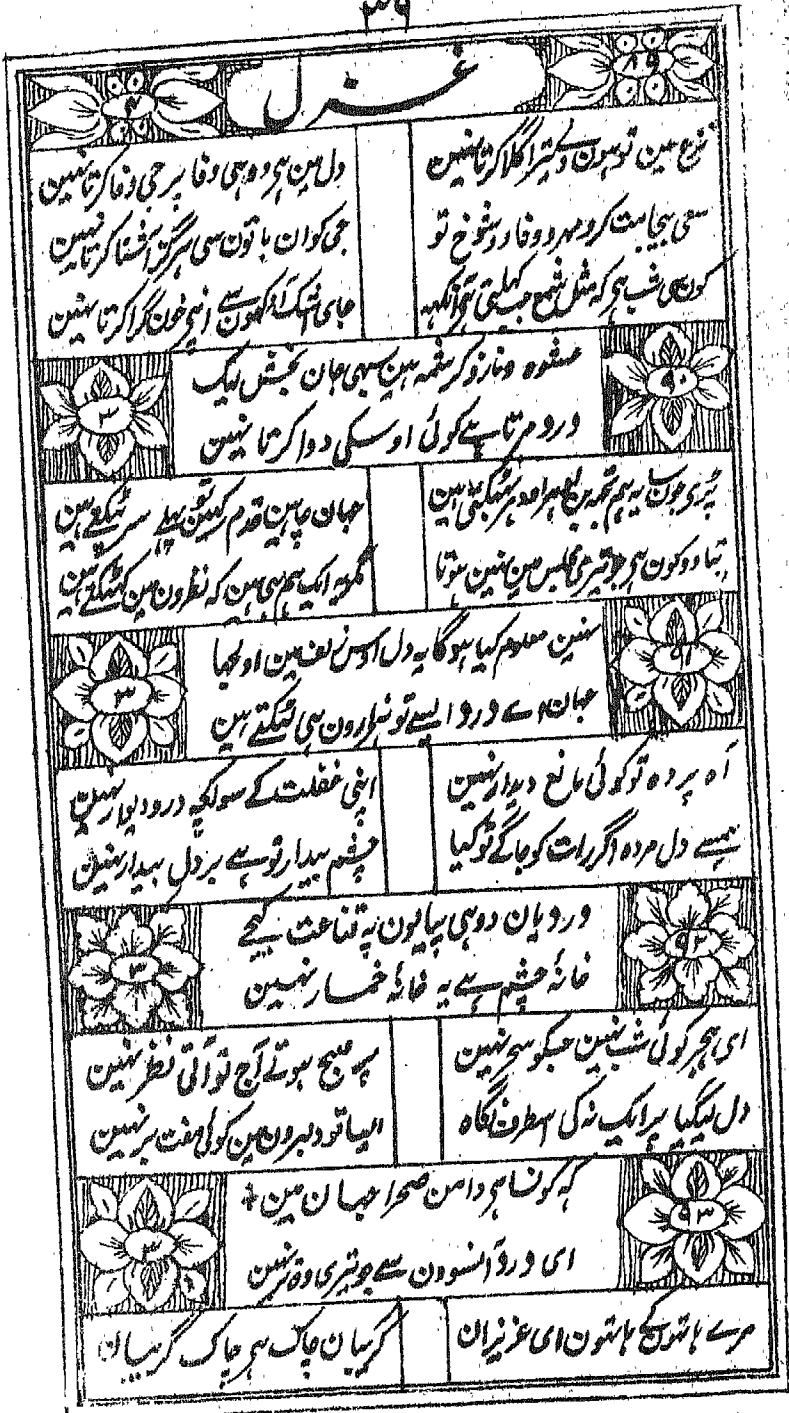 ۳۹
۸۹ غزل ۴
نزع مین تو ہون ولے تیرا گلا کرتا نہین
دل مین ہی وہ ہی وفا پر جی وفا کرتا نہین
جی کو ان باتون سی ہرگز آشنا کرتا نہین
کونسی شب ہی کہ مثل شمع جب کہلتی ہی آنکہہ
جای اشک آنکہون سے اپنی خون گرا کرتا نہین
۹۰ عشوہ و ناز و کرشمہ ہین سبہی جان بخش لیک ۳
درد مرتا ہے کوئی اوسکی دوا کرتا نہین
پڑی جون سایہ ہم تجہ بن ادہر اودہر بہٹکتی ہین
جہان چاہین قدم رکہین تو پہلے سر پٹکتے ہین
بتا وہ کون ہی جو تیری مجلس مین نہین ہوتا
مگر یہ ایک ہم ہی ہین کہ نظرون مین کہٹکتے ہین
۹۱ نہین معلوم کیا ہوگا یہ دل اوس زلف مین اولجہا ۳
جہان اے درد ایسے تو ہزارون ہی لٹکتے ہین
آہ پردہ تو کوئی مانع دیدار نہین
اپنی غفلت کے سوا کچہ در و دیوار نہین
جیسے دل مردہ اگر رات کو جاگے تو کیا
چشم بیدار تو ہے پر دل بیدار نہین
۹۲ درد یان دو ہی پیالون پہ قناعت کیجے ۳
خانۂ چشم ہے یہ خانۂ خمار نہین
ای ہجر کوئی شب نہین جسکو سحر نہین
پر صبح ہوتے آج تو آتی نظر نہین
دل لیگیا پر ایک نہ کی اسطرف نگاہ
ایسا تو دلبرون مین کوئی مفت بر نہین
۹۳ کہ کونسا ہی دامن صحرا جہان مین ۳
ای درد آنسوون سے جو تیری وہ تر نہین
مرے ہاتہونکے ہاتہون ای عزیزان
گریبان چاک ہی چاک گریبان